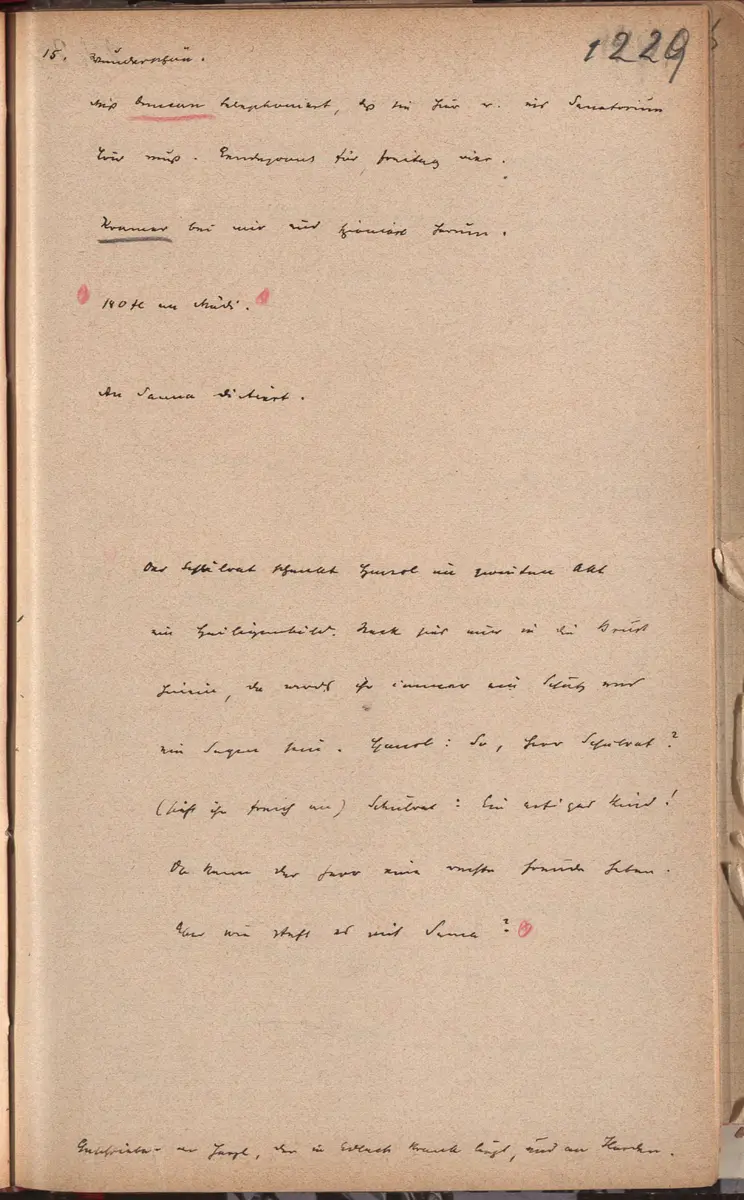 1229
15. Wunderschön.
Miß Duncan telephoniert, daß sie hier u. ins Sanatorium
muß. Rendezvous für Freitag vier.
Kramer bei mir und herum.
180 fl an Mädi.
An Sanna dictiert.
Der Schulrat schenkt Hannerl im zweiten Akt
ein Heiligenbild. Steck sies nur in die Brust
hinein, da wirds ihr immer ein Schutz und
ein Segen sein. Hannerl: So, Herr Schulrat?
(sieht ihn frech an) Schulrat: Ein artiges Kind!
Da kann der Herr eine rechte Freude haben.
Aber wie steht es mit Sanna?
Geschrieben an Herzl, der in Edlach krank liegt, und an Harden.